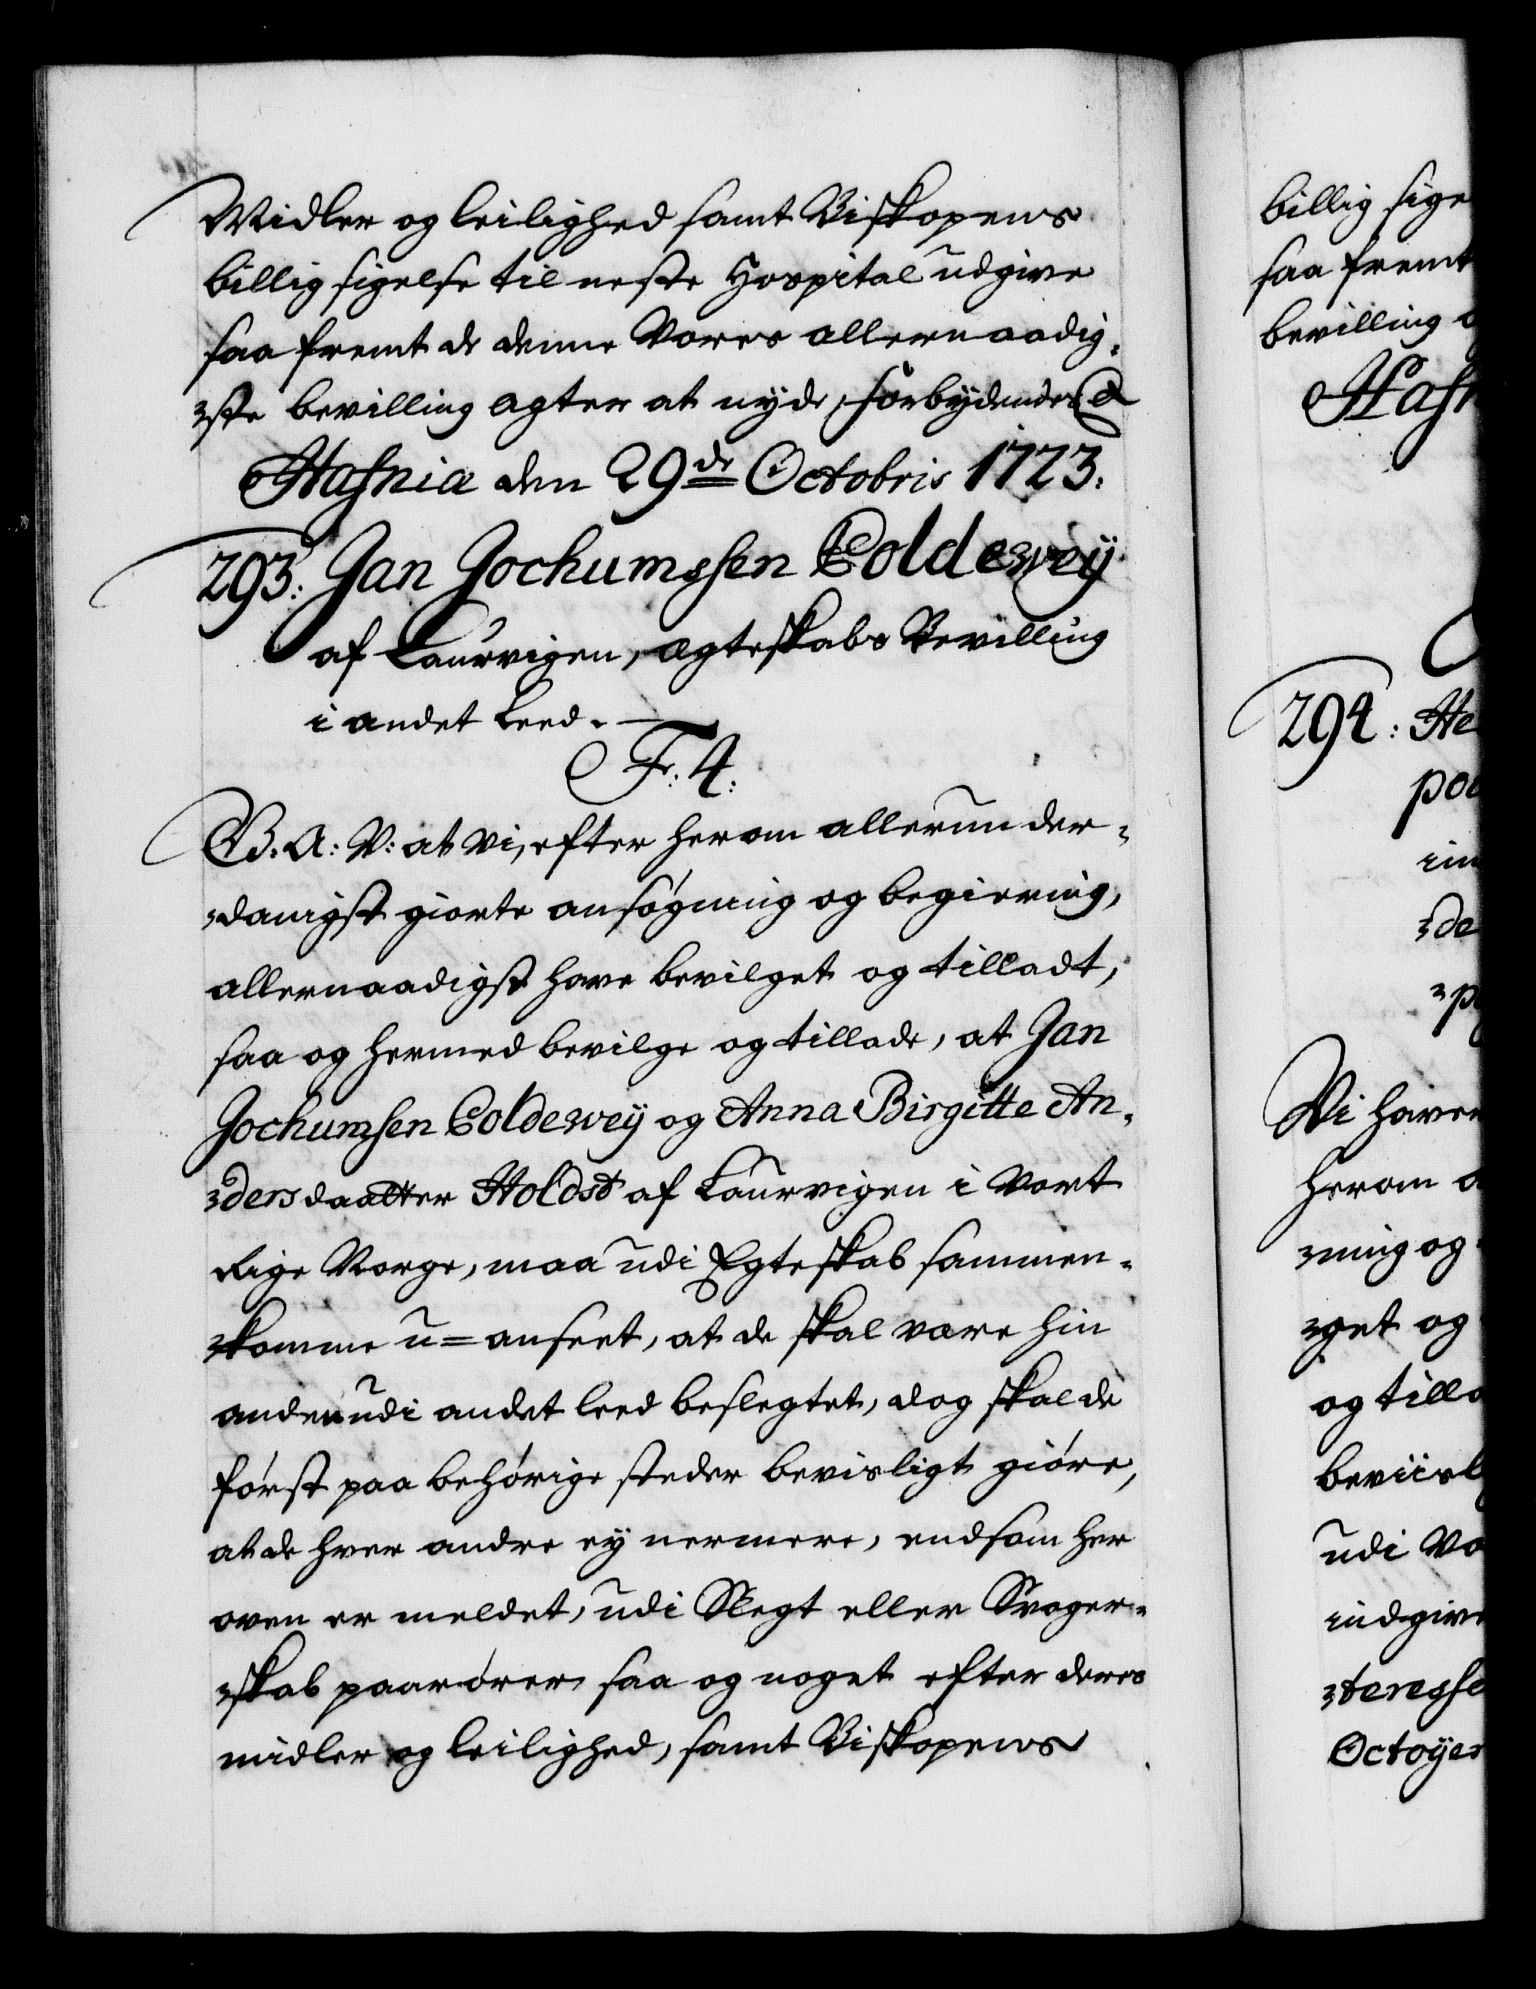 Midler og leilighed samt Biskopens
billig sigelse til neste Hospital udgive
saa fremt de denne Vores allernaadig-
ste bevilling agter at nyde, forbydendes &
Hafnia den 29de Octobris 1723.
293. Jan Jochumssen Coldewey
af Laurvigen, ægteskabs Bevilling
i andet Leed. —
Fr. 4.
G. A: V: at vi, efter herom allerunder-
danigst giorte ansøgning og begiering,
allernaadigst have bevilget og tilladt,
saa og hermed bevilge og tillade, at Jan
Jochumsen Coldewey og Anna Birgitte An-
dersdaatter Holdst af Laurvigen i Vort
Rige Norge, maa udi Egteskab sammen-
komme u=anseet, at de skal være hin
anden udi andet leed beslegtet, dog skal de
først paa behørige steder bevisligt giøre,
at de hver andre ey nermere, end som her
oven er meldet, udi Slegt eller Svoger-
skab paarører saa og noget efter deres
midler og leilighed, samt Biskopens
billig sige
saa fremt
bevilling
Hafn
294: He
poc
im
de
p
Vi haver
herom a
ning og
get og
og tilla
beviisl
udi Vo
indgive
teresse
Octoyer